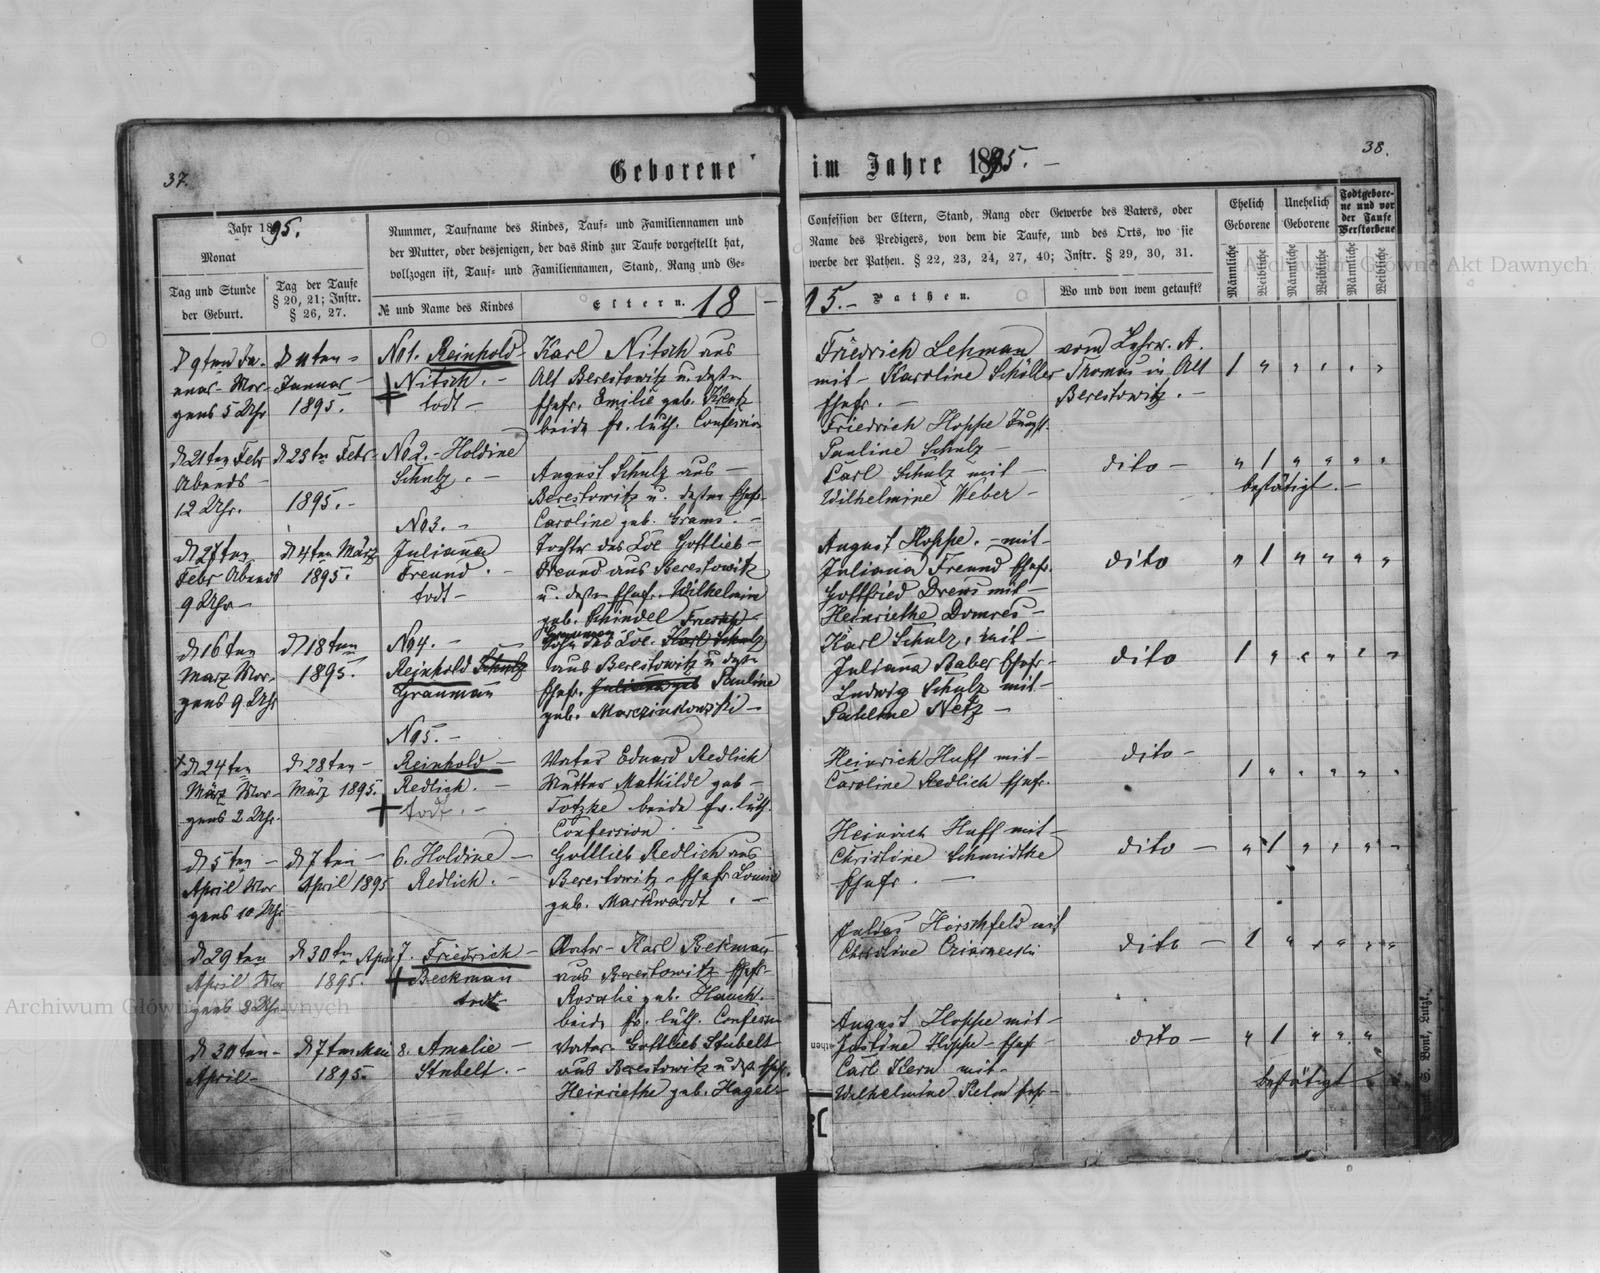 37.
Geborene
im Jahre 1895. –
38.
Jahr 1895.
Monat
Tag und Stunde
der Geburt.
Tag der Taufe
§ 20, 21; Instr.
§ 26, 27.
Nummer, Taufname des Kindes, Tauf- und Familiennamen und
der Mutter, oder desjenigen, der das Kind zur Taufe vorgestellt hat,
vollzogen ist, Tauf- und Familiennamen, Stand, Rang und Ge-
№ und Name des Kindes
Eltern.
18 –
95. –
Confession der Eltern, Stand, Rang oder Gewerbe des Vaters, oder
Name des Predigers, von dem die Taufe, und des Orts, wo sie
werbe der Pathen. § 22, 23, 24, 27, 40; Instr. § 29, 30, 31.
Pathen.
Wo und von wem getauft?
Ehelich
Geborene
Unehelich
Geborene
Todtgebore-
ne und vor
der Taufe
Verstorbene
Männliche
Weibliche
Männliche
Weibliche
Männliche
Weibliche
d 9ten Ja-
nuar Mor-
gens 5 Uhr
d 11ten –
Januar –
1895.
No 1. Reinhold
Nitsch. –
todt –
Karl Nitsch aus
Alt Berestowitz u. deßen
Ehefr. Emilie geb. Krenz
beide ev. luth. Confession
Friedrich Lehman
mit – Karoline Schöller
Ehefr. –
Friedrich Hoppe Jungg.
Pauline Schulz –
vom Lehrer A.
Thomas in Alt
Berestowitz. –
1 " " " " "
d 21ten Febr
Abends –
12 Uhr.
d 23ten Febr
1895. –
No 2. – Holdine
Schulz. –
August Schulz aus –
Berestowitz u. deßen Ehefr.
Caroline geb. Grams. –
Carl Schulz mit –
Wilhelmine Weber –
dito –
" 1 " " " "
bestätigt. –
d 27ten
Febr Abends
9 Uhr –
d 4ten März
1895.
No 3. –
Juliana
Freund. –
todt –
Tochter des Col. Gottlieb –
Freund aus Berestowitz
u. deßen Ehefr. Wilhelmin
geb. Schindel
August Hoppe. – mit –
Juliana Freund Ehefr.
Gottfried Drews mit –
Heinriethe Domres –
dito
" 1 " " " "
d 16ten
März Mor-
gens 9 Uhr
d 18ten
1895.
No 4. –
Reinhold Schulz
Grauman
Sohn des Col. Karl Schulz
aus Berestowitz u deßen
Ehefr. Juliana geb Pauline
geb. Marczinkowski –
Karl Schulz, mit –
Juliana Raber Ehefr –
Ludwig Schulz mit –
Pauline Netz –
dito
1 " " " " "
d 24ten
März Mor-
gens 2 Uhr.
d 28ten –
März 1895.
No 5. –
Reinhold –
Redlich. –
todt. –
Vater Eduard Redlich
Mutter Mathilde geb –
Totzke beide ev. luth.
Confession
Heinrich Huff mit –
Caroline Redlich Ehefr.
dito –
1 " " " " "
d 5ten –
April Mor
gens 10 Uhr
d 7ten –
April 1895
6. Holdine –
Redlich. –
Gottlieb Redlich aus
Berestowitz – Ehefr Louise
geb. Markwardt. –
Heinrich Huff mit –
Christine Schmidtke
Ehefr. –
dito –
" 1 " " " "
d 29ten
April Mor
gens 3 Uhr –
d 30ten April
1895.
7. Friedrich –
Beckman
todt
Vater – Karl Bekman
aus Berestowitz Ehefr.
Rosalie geb. Hauch.
beide ev. luth. Confession
Hirschfeld mit
Christine
dito –
1 " " " " "
d 30ten –
April –
d 7ten Mai
1895.
8. Amalie –
Stubelt. –
Vater Gottlieb Stubelt
aus Berestowitz u deß. Ehefr.
Heinriethe geb. Hagel
August Hoppe mit –
Justine Hoppe – Ehefr –
Carl Kern mit –
Wilhelmine Ehefr –
dito –
" 1 " " "
bestätigt
S. Bonk, Lutzk.
Archiwum Główne Akt Dawnych
Archiwum Główne Akt Dawnych